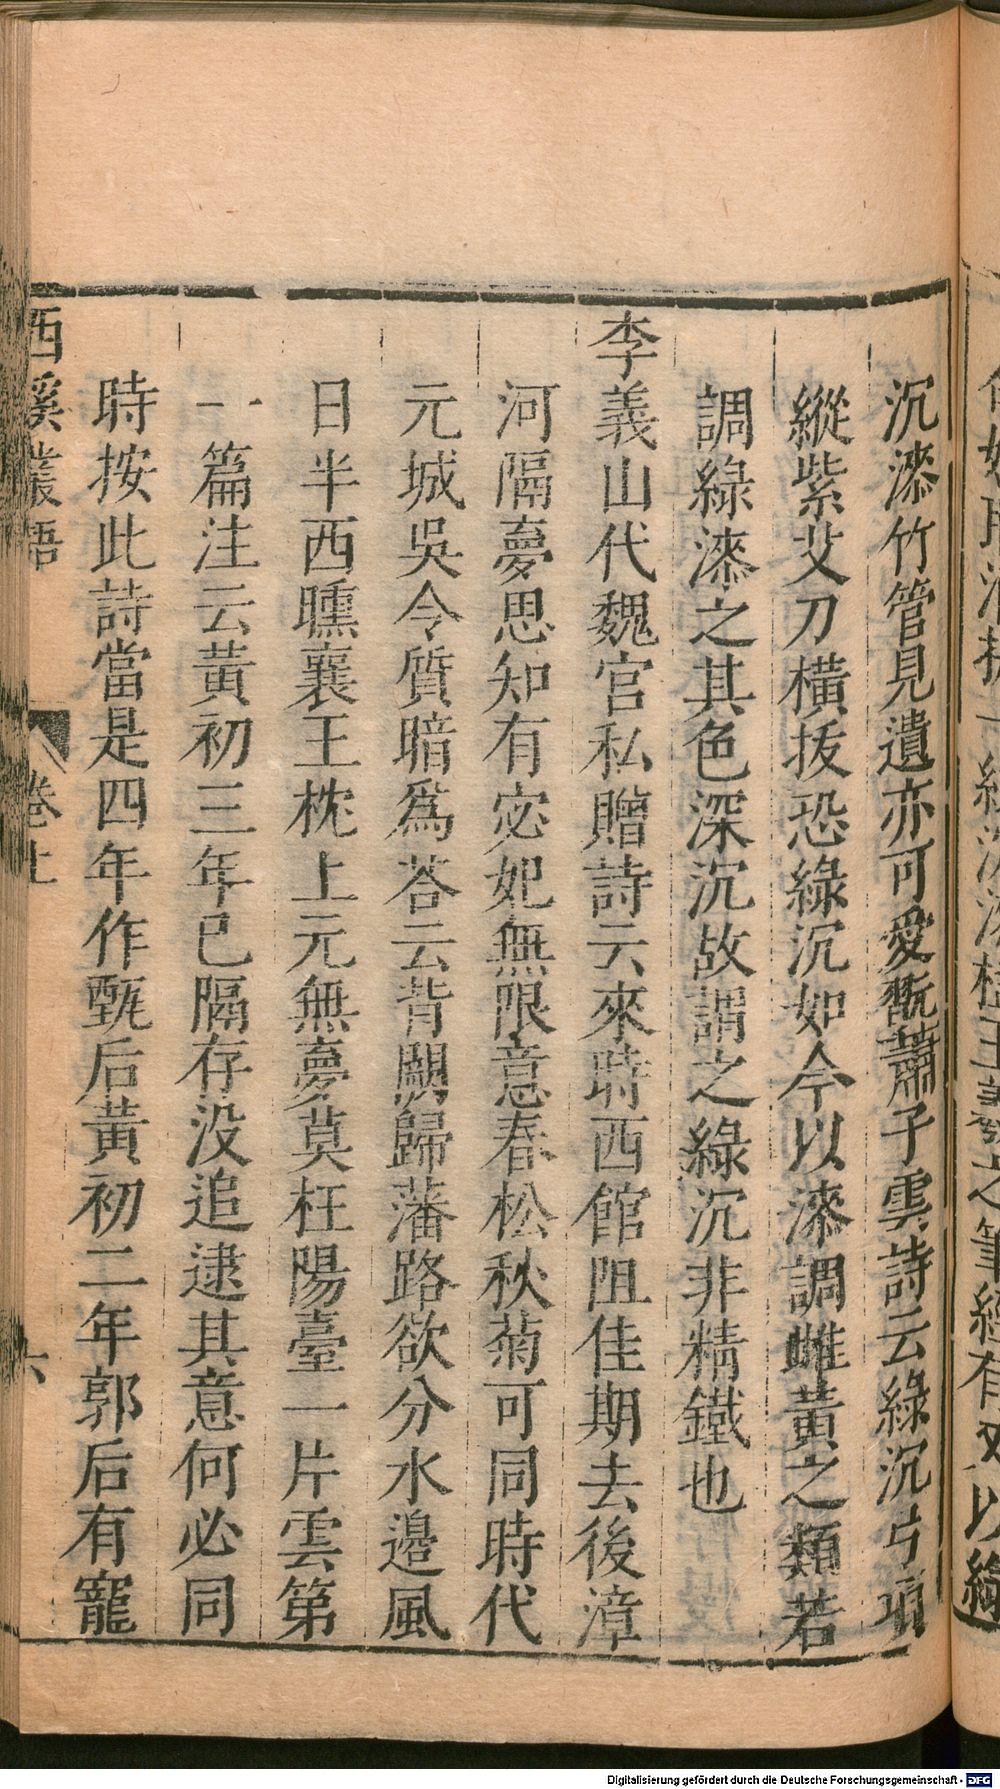 沉漆竹管見遺亦可愛翫蕭子雲詩云綠沉弓項
縱紫艾刀橫拔恐綠沉如今以漆調雌黃之類若
調綠漆之其色深沉故謂之綠沉非精鐵也
李義山代魏宫私贈詩云來時西館阻佳期去後漳
河隔夢思知有宓妃無限意春松秋菊可同時代
元城吳令質暗爲荅云背闕歸藩路欲分水邉風
日半西曛襄王枕上元無夢莫枉陽臺一片雲第
一篇注云黃初三年已隔存没追逮其意何必同
時按此詩當是四年作甄后黃初二年郭后有寵
西溪叢語 卷上 六
Digitalisierung gefördert durch die Deutsche Forschungsgemeinschaft - DFG